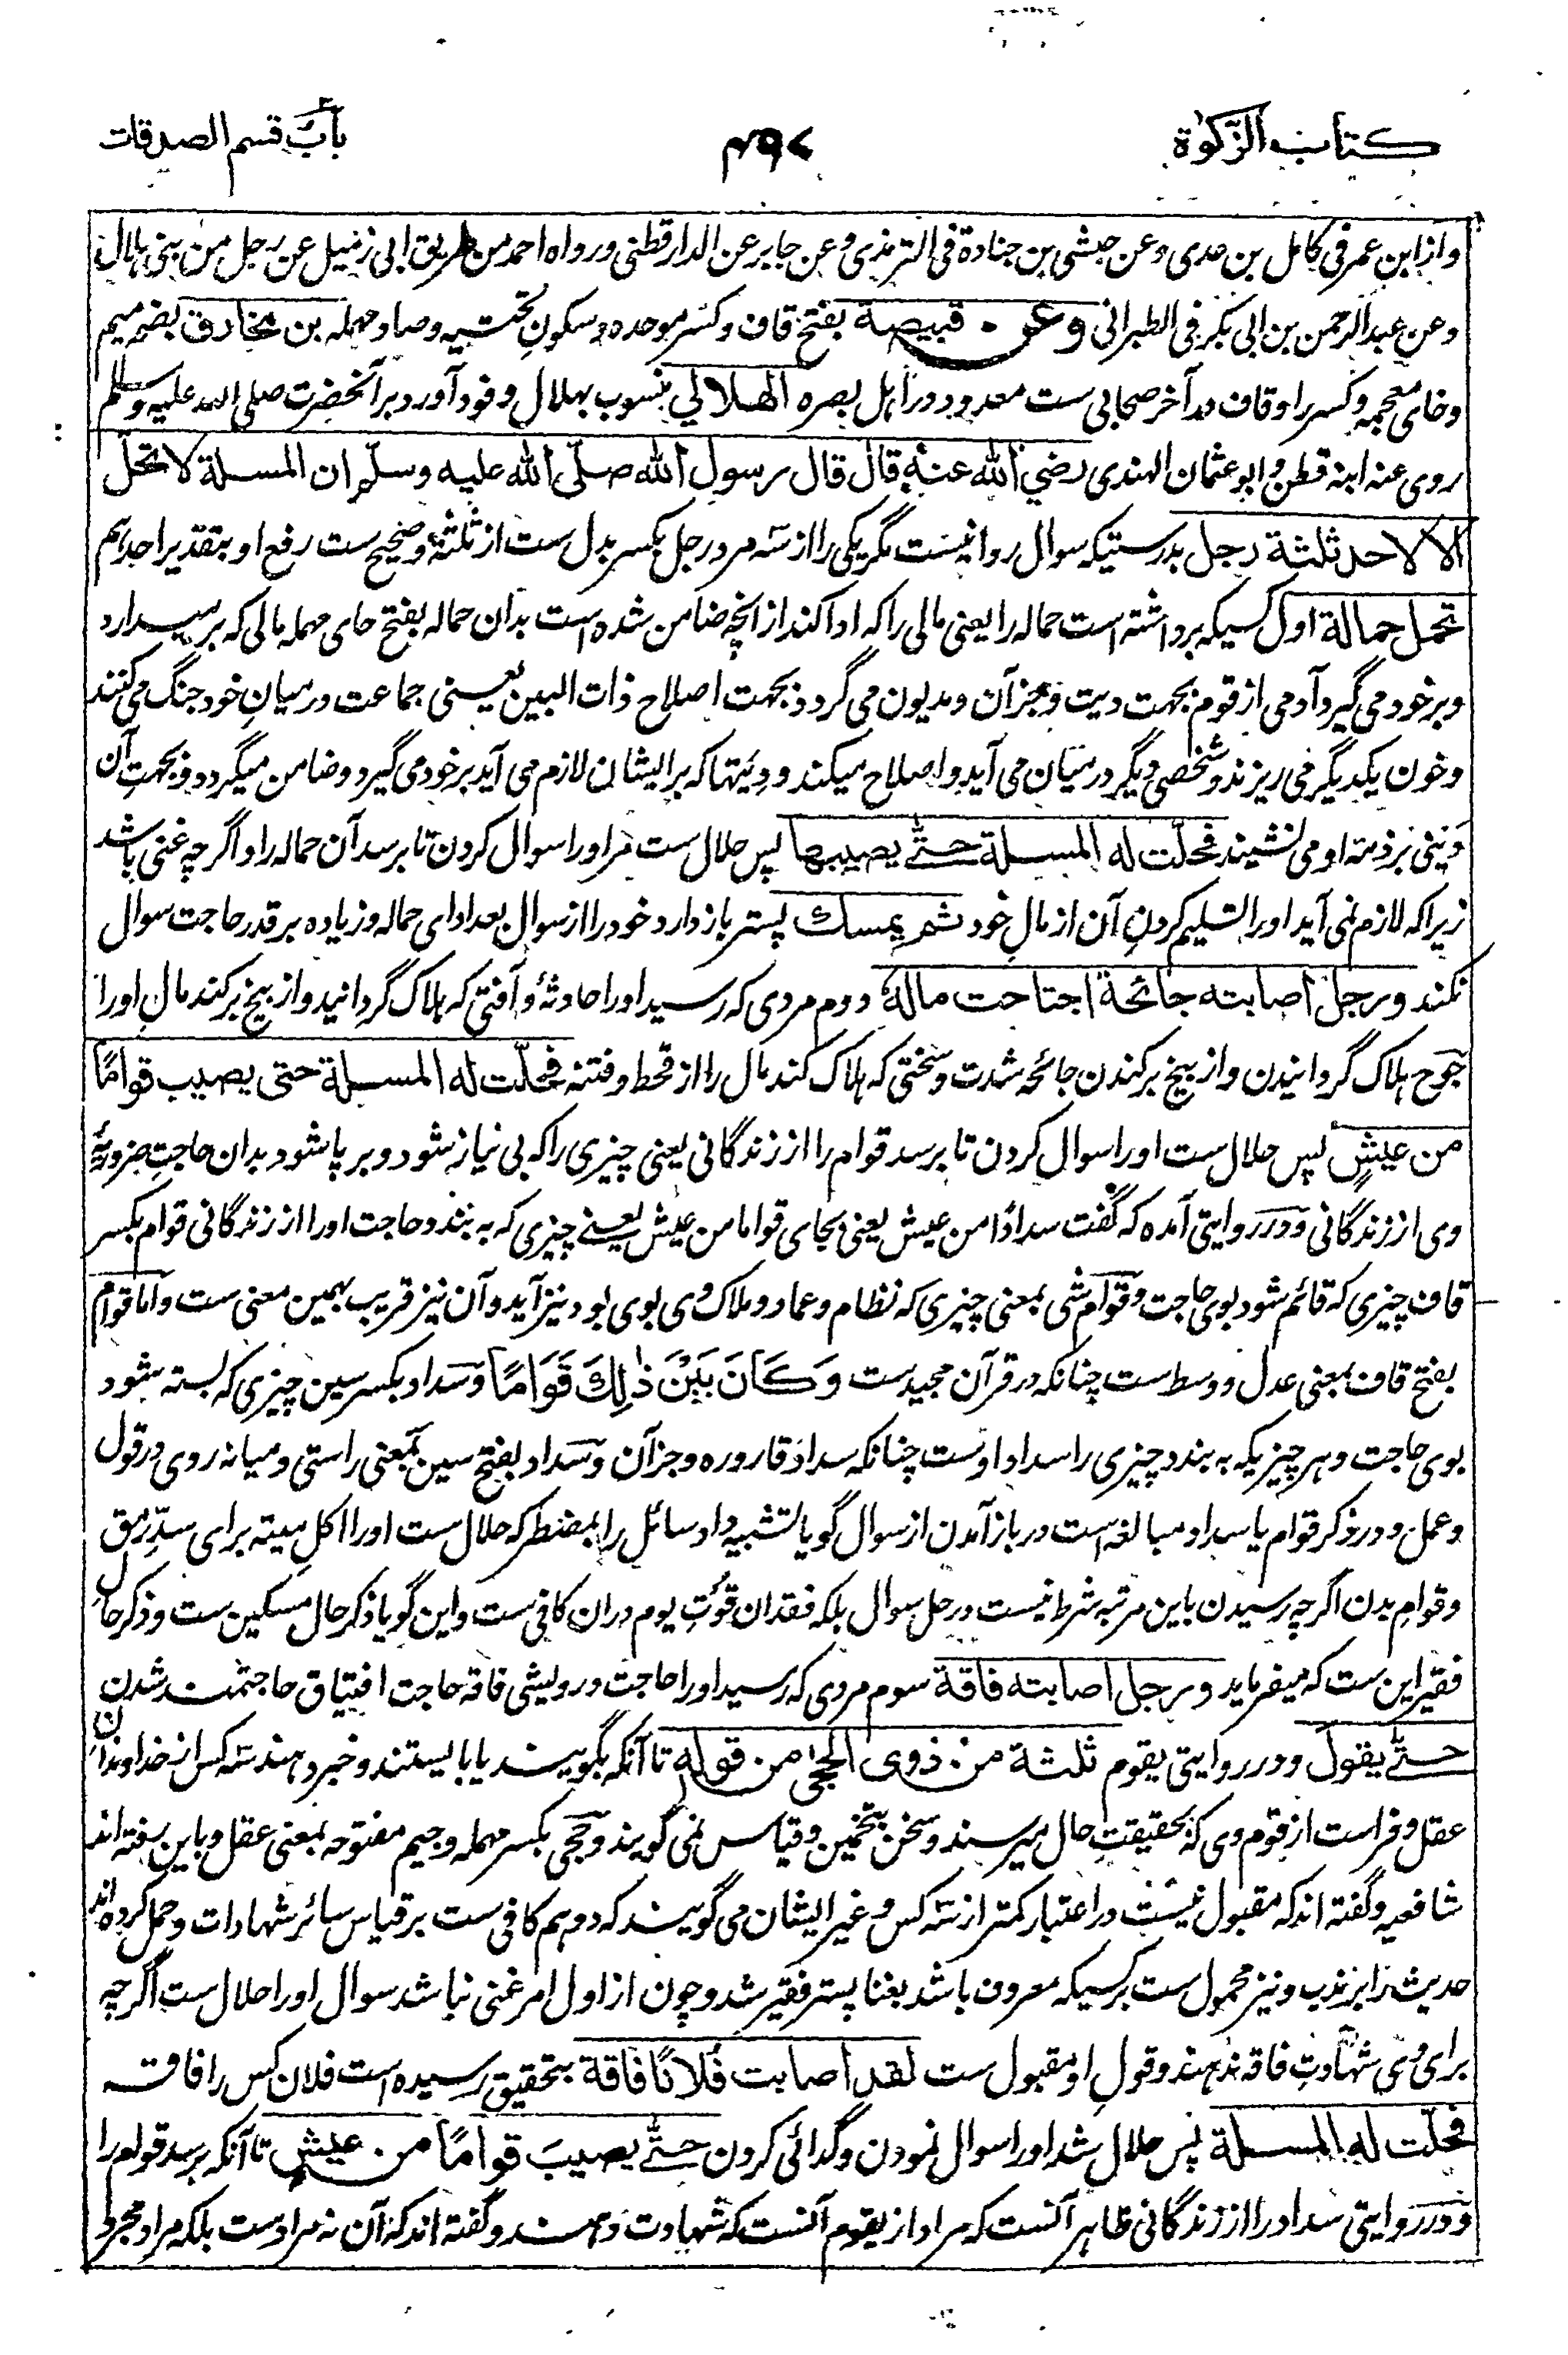 كتاب الزكوٰة
۴۹۷
باب قسم الصدقات
و از ابن عمر فی کامل بن عدی و عن حبشی بن جنادة فی الترمذی و عن جابر عن الدارقطنی و رواه احمد من طریق ابی زمیل عن رجل من بنی هلال
و عن عبد الرحمن بن ابی بکر فی الطبرانی وعن قبيصة بفتح قاف و کسر موحده و سکون تحتیه و صاد مهمله بن مخارق بضم میم
و خای معجمه و کسر را و قاف در آخر صحابی ست معدود در اهل بصره الهلالي منسوب بهلال وفود آورد بر آنحضرت صلی الله علیه وسلم
روی عنه ابنه قطن و ابو عثمان الهندی رضي الله عنه قال قال رسول الله صلّى الله عليه وسلّم ان المسئلة لا تحلّ
الا لاحد ثلثة رجل بدرستیکه سوال روا نیست مگر یکی را از سه مرد رجل بکسر بدل ست از ثلثة و صحیح ست رفع او بتقدیر احدهم
تحمل حمالة اول کسیکه برداشته است حماله را یعنی مالی را که ادا کند از آنچه ضامن شده است بدان حماله بفتح حای مهمله مالی که بر میدارد
و بر خود می گیرد آدمی از قوم بجهت دیت و جز آن و مدیون می گردد بجهت اصلاح ذات البین یعنی جماعت در میان خود جنگ می کنند
و خون یکدیگر می ریزند و شخصی دیگر در میان می آید و اصلاح میکند و دیتها که بر ایشان لازم می آید بر خود می گیرد و ضامن میگردد و بجهت آن
دینی بر ذمه او می نشیند فحلّت له المسئلة حتّى يصيبها پس حلال ست مر او را سوال کردن تا برسد آن حماله را و اگر چه غنی باشد
زیرا که لازم نمی آید او را تسلیم کردن آن از مال خود ثم يمسك پستر باز دارد خود را از سوال بعد ادای حماله و زیاده بر قدر حاجت سوال
نکند ورجل اصابته جائحة اجتاحت ماله دوم مردی که رسید او را حادثۀ و آفتی که هلاک گردانید و از بیخ برکند مال او را
جوح هلاک گردانیدن و از بیخ برکندن جائحه شدت و سختی که هلاک کند مال را از قحط و فتنه فحلّت له المسئلة حتى يصيب قوامًا
من عيشٍ پس حلال ست او را سوال کردن تا برسد قوام را از زندگانی یعنی چیزی را که بی نیاز شود و بر پا شود بدان حاجت ضروریۀ
وی از زندگانی و در روایتی آمده که گفت سدادًا من عیش یعنی بجای قواما من عیش یعنی چیزی که به بندد حاجت او را از زندگانی قوام بکسر
قاف چیزی که قائم شود بوی حاجت و قوام شی بمعنی چیزی که نظام و عماد و ملاک وی بوی بود نیز آید و آن نیز قریب بهمین معنی ست و اما قوام
بفتح قاف بمعنی عدل و وسط ست چنانکه در قرآن مجید ست وَكَانَ بَيْنَ ذٰلِكَ قَوَامًا و سداد بکسر سین چیزی که بسته شود
بوی حاجت و هر چیزیکه به بندد چیزی را سداد اوست چنانکه سداد قاروره و جز آن و سداد بفتح سین بمعنی راستی و میانه روی در قول
و عمل و در ذکر قوام یا سداد مبالغه است در باز آمدن از سوال گویا تشبیه داد سائل را بمضطر که حلال ست او را اکل میته برای سدّ رمق
و قوام بدن اگر چه رسیدن باین مرتبه شرط نیست در حل سوال بلکه فقدان قوت یوم در ان کافی ست و این گویا ذکر حال مسکین ست و ذکر حال
فقیر این ست که میفرماید ورجل اصابته فاقة سوم مردی که رسید او را حاجت و درویشی فاقه حاجت افتیاق حاجتمند شدن
حتّى يقول و در روایتی یقوم ثلثة من ذوى الحجى من قومه تا آنکه بگویند یا بایستند و خبر دهند سه کس از خداوندان
عقل و فراست از قوم وی که بحقیقت حال میرسند و سخن بتخمین و قیاس نمی گویند و حجی بکسر مهمله و جیم مفتوحه بمعنی عقل و باین رفته اند
شافعیه و گفته اند که مقبول نیست در اعتبار کمتر از سه کس و غیر ایشان می گویند که دو هم کافی ست بر قیاس سائر شهادات و حمل کرده اند
حدیث را بر ندب و نیز محمول ست بر کسیکه معروف باشد بغنا پستر فقیر شد و چون از اول امر غنی نباشد سوال او را حلال ست اگر چه
برای وی شهادت فاقه ندهند و قول او مقبول ست لقد اصابت فلانًا فاقة بتحقیق رسیده است فلان کس را فاقه
فحلّت له المسئلة پس حلال شد او را سوال نمودن و گدائی کردن حتّى يصيبَ قوامًا من عيشٍ تا آنکه برسد قوام را
و در روایتی سداد را از زندگانی ظاهر آنست که مراد از یقوم آنست که شهادت دهند و گفته اند که آن نه مرادست بلکه مراد مجرد